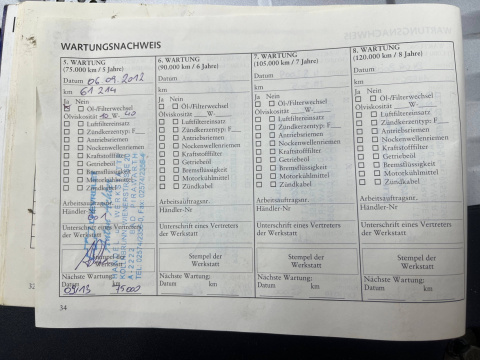 WARTUNGSNACHWEIS
5. WARTUNG
(75.000 km / 5 Jahre)
Datum 06.09.2012
km 61 214
Ja Nein
Öl-/Filterwechsel
Ölviskosität 10 W- 40
Luftfiltereinsatz
Zündkerzentyp: F
Antriebsriemen
Nockenwellenriemen
Kraftstofffilter
Getriebeöl
Bremsflüssigkeit
Motorkühlmittel
Zündkabel
Arbeitsauftragsnr.
Händler-Nr
Unterschrift eines Vertreters
der Werkstatt
Stempel der
Werkstatt
Nächste Wartung:
Datum km
09/13 75000
6. WARTUNG
(90.000 km / 6 Jahre)
Datum
km
Ja Nein
Öl-/Filterwechsel
Ölviskosität W-
Luftfiltereinsatz
Zündkerzentyp: F
Antriebsriemen
Nockenwellenriemen
Kraftstofffilter
Getriebeöl
Bremsflüssigkeit
Motorkühlmittel
Zündkabel
Arbeitsauftragsnr.
Händler-Nr
Unterschrift eines Vertreters
der Werkstatt
Stempel der
Werkstatt
Nächste Wartung:
Datum km
7. WARTUNG
(105.000 km / 7 Jahre)
Datum
km
Ja Nein
Öl-/Filterwechsel
Ölviskosität W-
Luftfiltereinsatz
Zündkerzentyp: F
Antriebsriemen
Nockenwellenriemen
Kraftstofffilter
Getriebeöl
Bremsflüssigkeit
Motorkühlmittel
Zündkabel
Arbeitsauftragsnr.
Händler-Nr
Unterschrift eines Vertreters
der Werkstatt
Stempel der
Werkstatt
Nächste Wartung:
Datum km
8. WARTUNG
(120.000 km / 8 Jahre)
Datum
km
Ja Nein
Öl-/Filterwechsel
Ölviskosität W-
Luftfiltereinsatz
Zündkerzentyp: F
Antriebsriemen
Nockenwellenriemen
Kraftstofffilter
Getriebeöl
Bremsflüssigkeit
Motorkühlmittel
Zündkabel
Arbeitsauftragsnr.
Händler-Nr
Unterschrift eines Vertreters
der Werkstatt
Stempel der
Werkstatt
Nächste Wartung:
Datum km
34